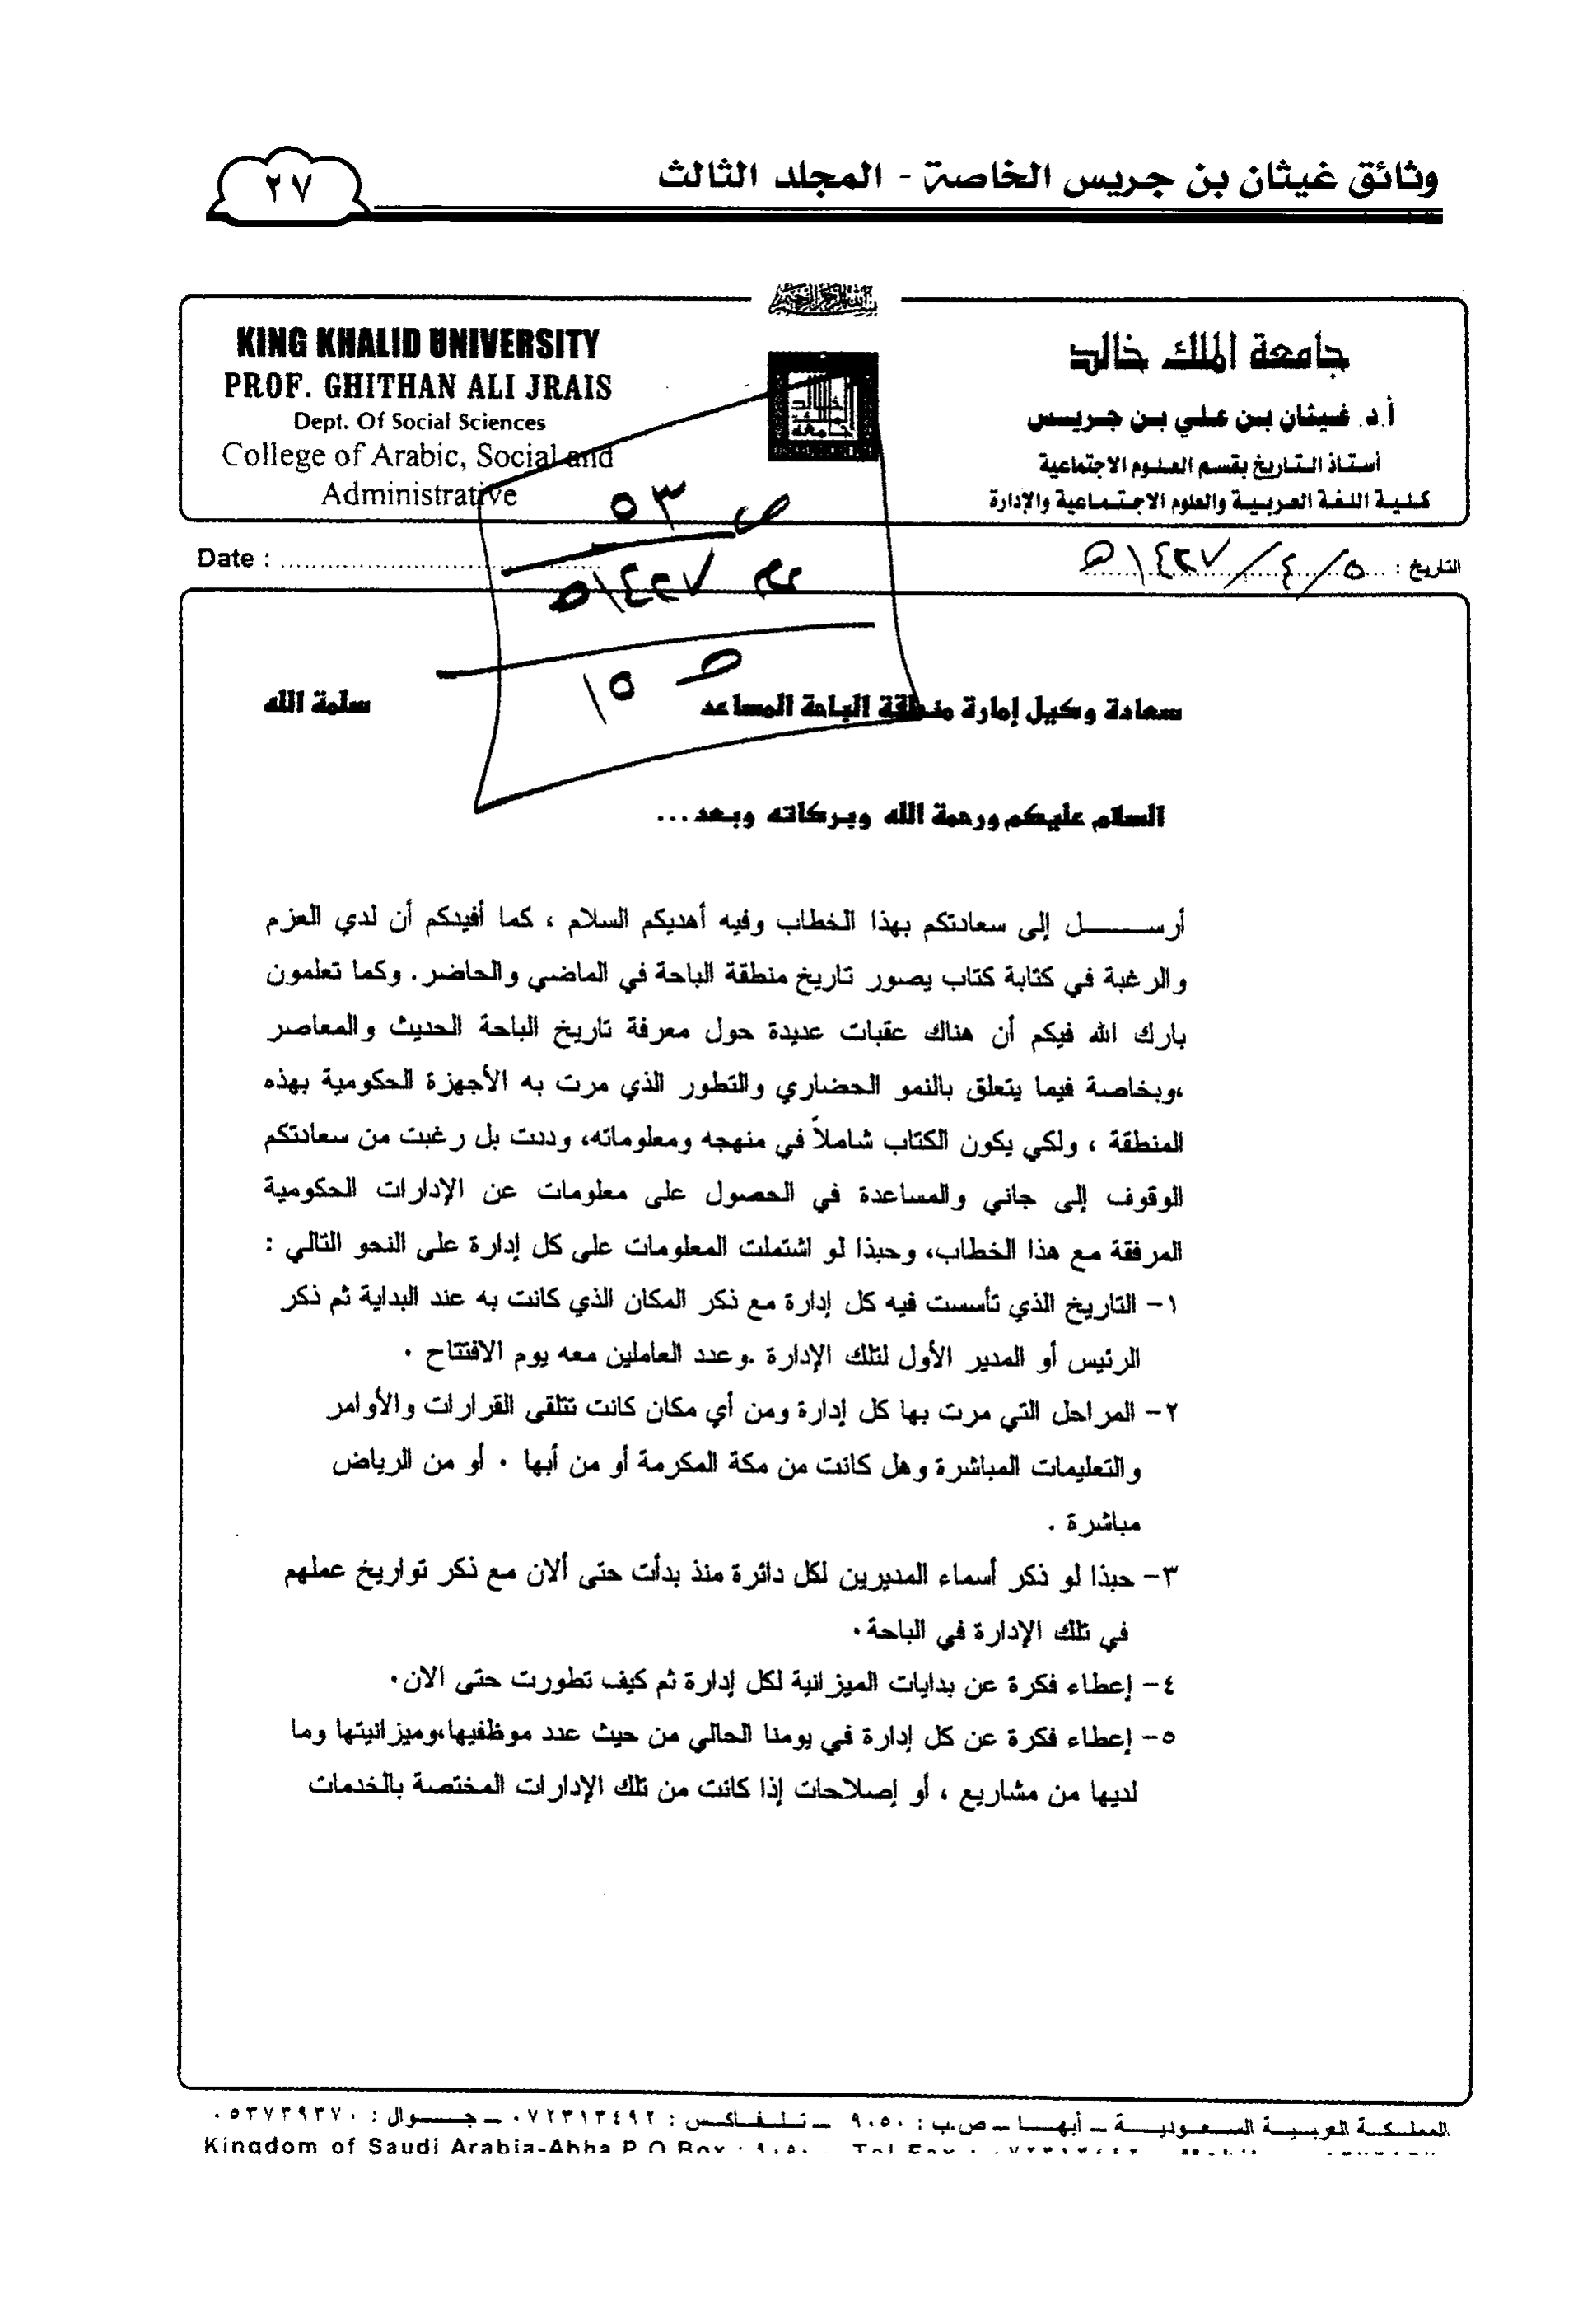 وثائق غيثان بن جريس الخاصة - المجلد الثالث
٢٧
KING KHALID UNIVERSITY
PROF. GHITHAN ALI JRAIS
Dept. Of Social Sciences
College of Arabic, Social and
Administrative
جامعة الملك خالد
أ.د. غيثان بن علي بن جريس
أستاذ التاريخ بقسم العلوم الاجتماعية
كلية اللغة العربية والعلوم الاجتماعية والإدارة
ص ٥٣
١٤٢٧ه
ص ١٥
التاريخ : ٥/٤/١٤٢٧ه
Date :
سعادة وكيل إمارة منطقة الباحة المساعد سلمة الله
السلام عليكم ورحمة الله وبركاته وبعد...
أرســـــل إلى سعادتكم بهذا الخطاب وفيه أهديكم السلام ، كما أفيدكم أن لدي العزم
والرغبة في كتابة كتاب يصور تاريخ منطقة الباحة في الماضي والحاضر. وكما تعلمون
بارك الله فيكم أن هناك عقبات عديدة حول معرفة تاريخ الباحة الحديث والمعاصر
،وبخاصة فيما يتعلق بالنمو الحضاري والتطور الذي مرت به الأجهزة الحكومية بهذه
المنطقة ، ولكي يكون الكتاب شاملاً في منهجه ومعلوماته، وددت بل رغبت من سعادتكم
الوقوف إلى جاني والمساعدة في الحصول على معلومات عن الإدارات الحكومية
المرفقة مع هذا الخطاب، وحبذا لو اشتملت المعلومات على كل إدارة على النحو التالي :
١- التاريخ الذي تأسست فيه كل إدارة مع ذكر المكان الذي كانت به عند البداية ثم ذكر
الرئيس أو المدير الأول لتلك الإدارة .وعدد العاملين معه يوم الافتتاح .
٢- المراحل التي مرت بها كل إدارة ومن أي مكان كانت تتلقى القرارات والأوامر
والتعليمات المباشرة وهل كانت من مكة المكرمة أو من أبها . أو من الرياض
مباشرة .
٣- حبذا لو ذكر أسماء المديرين لكل دائرة منذ بدأت حتى ألان مع ذكر تواريخ عملهم
في تلك الإدارة في الباحة.
٤- إعطاء فكرة عن بدايات الميزانية لكل إدارة ثم كيف تطورت حتى الان.
٥- إعطاء فكرة عن كل إدارة في يومنا الحالي من حيث عدد موظفيها،وميزانيتها وما
لديها من مشاريع ، أو إصلاحات إذا كانت من تلك الإدارات المختصة بالخدمات
المملكة العربية السعودية – أبها – ص.ب : ٩٠٥٠ – تلفاكس : ٠٧٢٣١٣٤٩٢ – جوال : ٠٥٣٧٣٩٣٧٠
Kingdom of Saudi Arabia-Abha P.O.Box : ٩٠٥٠ - Tel Fax :